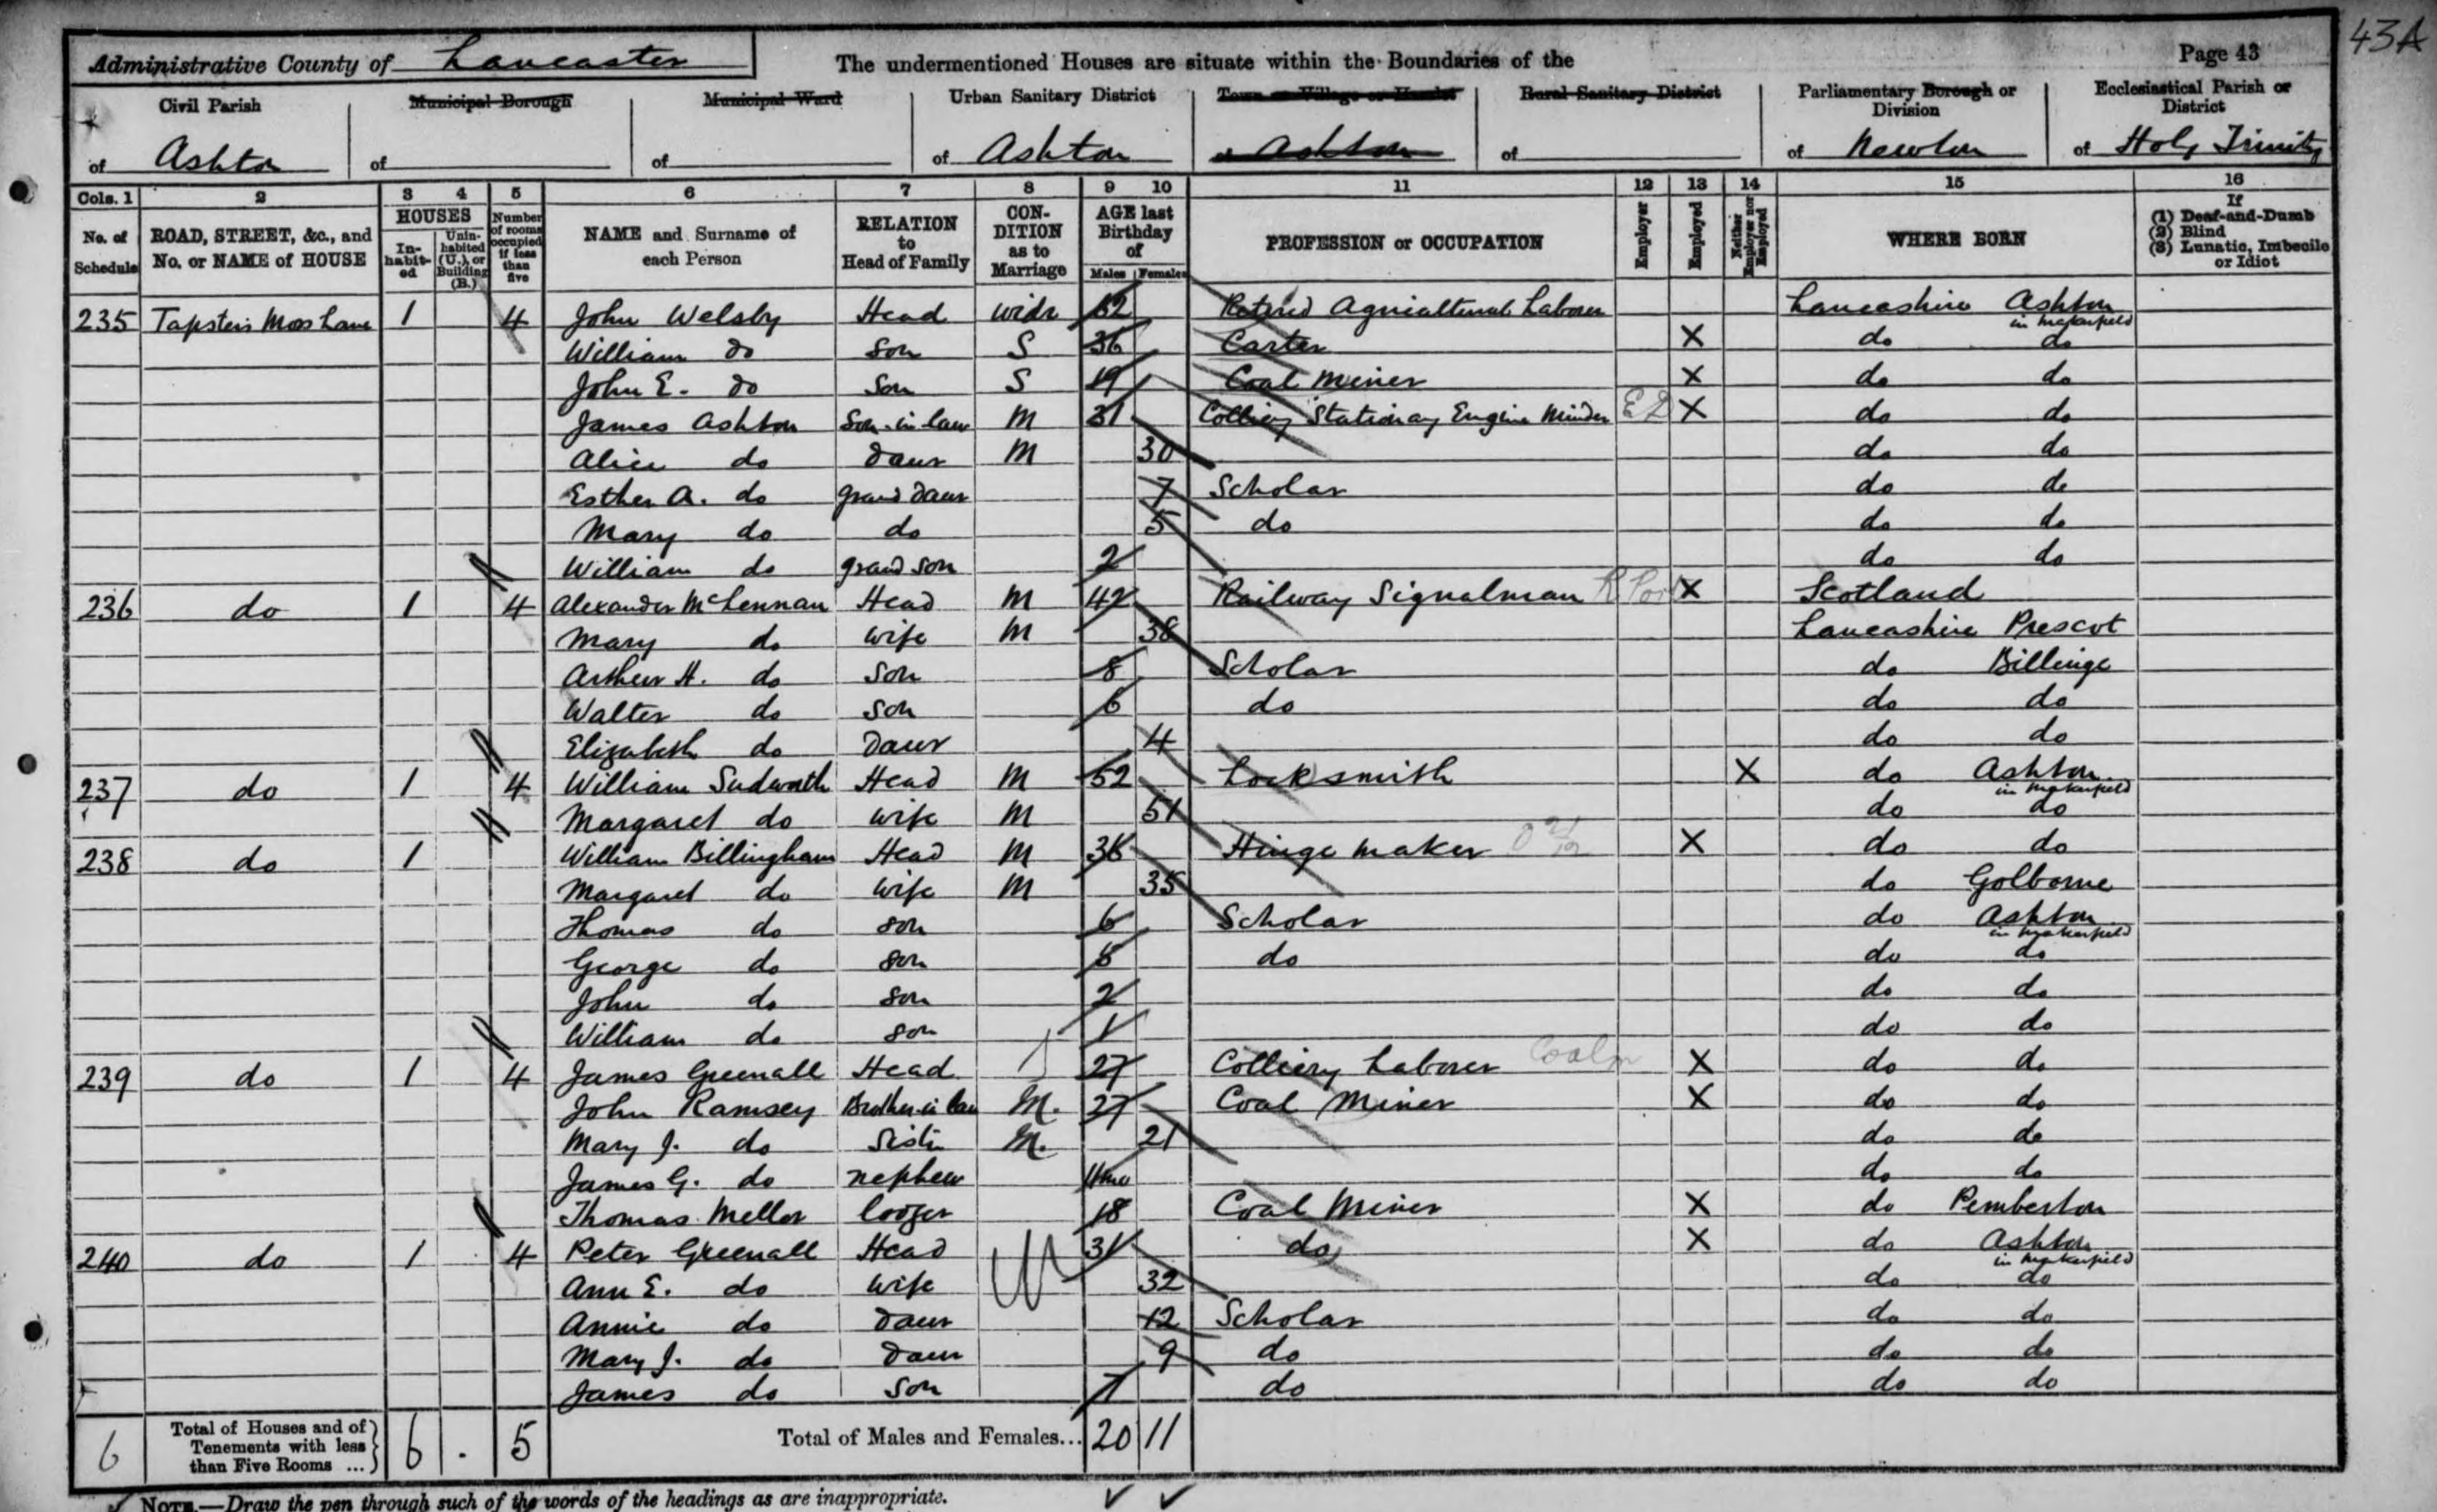 43A
Administrative County of Lancaster The undermentioned Houses are situate within the Boundaries of the Page 43
Civil Parish Municipal Borough Municipal Ward Urban Sanitary District Town or Village or Hamlet Rural Sanitary District Parliamentary Borough or Division Ecclesiastical Parish or District
of Ashton of of of Ashton of Ashton of of Newton of Holy Trinity
Cols. 1 2 3 4 5 6 7 8 9 10 11 12 13 14 15 16
No. of Schedule ROAD, STREET, &c., and No. or NAME of HOUSE HOUSES Inhabited Uninhabited (U.), or Building (B.) Number of rooms occupied if less than five NAME and Surname of each Person RELATION to Head of Family CONDITION as to Marriage AGE last Birthday of Males Females PROFESSION or OCCUPATION Employer Employed Neither Employer nor Employed WHERE BORN If (1) Deaf-and-Dumb (2) Blind (3) Lunatic, Imbecile or Idiot
235 Moss Lane 1 4 John Welsby Head widr 62 Retired Agricultural Laborer Lancashire Ashton in Makerfield
William do Son S 36 Carter X do do
John E. do Son S 19 Coal Miner X do do
James Ashton Son-in-law M 31 Colliery Stationary Engine Minder X do do
Alice do Daur M 30 do do
Esther A. do grand Daur 7 Scholar do do
Mary do do 5 do do do
William do grand son 2 do do
236 do 1 4 Alexander McLennan Head M 42 Railway Signalman X Scotland
Mary do wife M 38 Lancashire Prescot
Arthur H. do Son 8 Scholar do Billinge
Walter do Son 6 do do do
Elizabeth do Daur 4 do do
237 do 1 4 William Sudworth Head M 52 Locksmith X do Ashton in Makerfield
Margaret do wife M 51 do do
238 do 1 William Billingham Head M 36 Hinge maker X do do
Margaret do wife M 35 do Golborne
Thomas do son 6 Scholar do Ashton in Makerfield
George do son 5 do do do
John do son 2 do do
William do son 1 do do
239 do 1 4 James Greenall Head 27 Colliery Laborer X do do
John Ramsey Brother in law M. 27 Coal Miner X do do
Mary J. do Sister M. 21 do do
James G. do nephew 11mo do do
Thomas Mellor lodger 18 Coal Miner X do Pemberton
240 do 1 4 Peter Greenall Head M 31 do X do Ashton in Makerfield
Ann E. do wife 32 do do
Annie do Daur 12 Scholar do do
Mary J. do Daur 9 do do do
James do Son 7 do do do
6 Total of Houses and of Tenements with less than Five Rooms ... 6 . 5 Total of Males and Females... 20 11
NOTE.—Draw the pen through such of the words of the headings as are inappropriate.